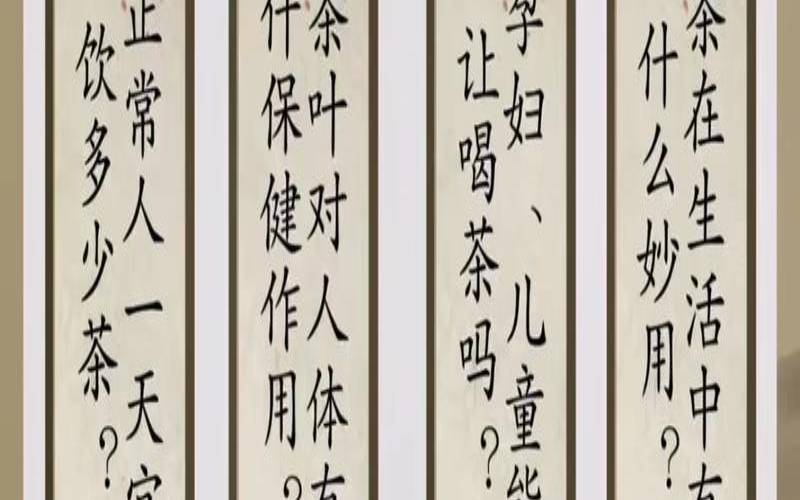 茶在生活中有
什么妙用？
孕妇、儿童能
让喝茶吗？
茶叶对人体有
什保健作用？
正常人一天宜
饮多少茶？